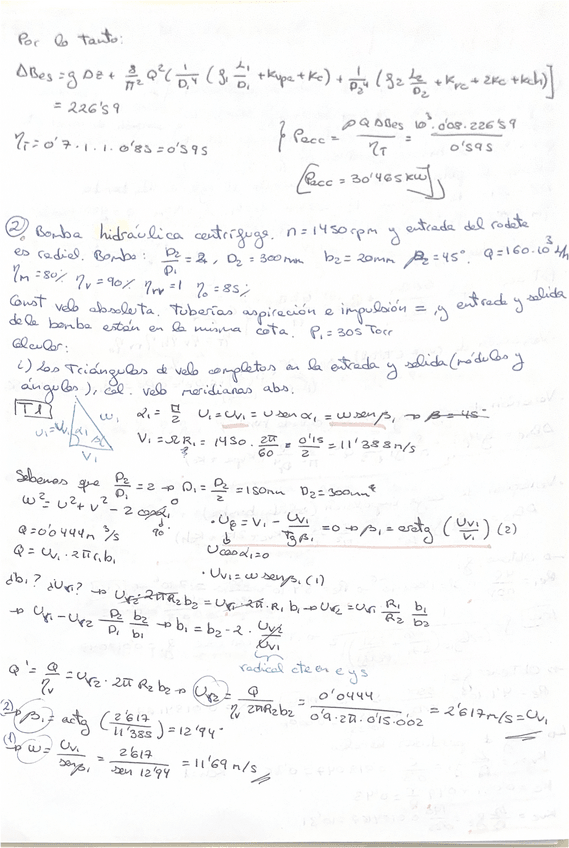 Por lo tanto:
ΔBes = g Δz + 8/π² Q² (1/D₁⁴ (f₁ L₁/D₁ + Kvpc + Kc) + 1/D₂⁴ (f₂ L₂/D₂ + Krc + 2Kc + Kch)]
= 226'59
ηT = 0'7 · 1 · 1 · 0'85 = 0'595
Pacc = ρQΔBes/ηT = 10³ · 0'08 · 226'59/0'595
[Pacc = 30'465 kW]
2. Bomba hidráulica centrífuga. n = 1450 rpm y entrada del rodete
es radial. Bomba: D₂/D₁ = 2, D₂ = 300mm b₂ = 20mm β₂ = 45°. Q = 160·10³ l/h
ηm = 80% ηv = 90% ηrv = 1 η₀ = 85%
Const velo absoleta. Tuberías aspiración e impulsión =, y entrada y salida
de la bomba están en la misma cota. P₁ = 305 Torr
Calcular:
i) Los Triángulos de velo completos en la entrada y salida (módulos y
ángulos), col. velo meridianas abs.
T1
U₁ = Uv₁ α₁ ω₁ V₁
α₁ = π/2 U₁ = Uv₁ = U sen α₁ = ω sen β₁ → β = 45°
V₁ = ΩR₁ = 1450 · 2π/60 = 0'15/2 = 11'388 m/s
Sabemos que D₂/D₁ = 2 → D₁ = D₂/2 = 150mm D₂ = 300mm
ω² = U² + V² - 2 cos α 0
90°
Q = 0'0444 m³/s
Q = Uv₁ · 2π r₁ b₁
· Uθ = V₁ - Uv₁/tg β₁ = 0 → β₁ = arctg (Uv₁/V₁) (2)
U cos α₁ = 0
· Uv₁ = ω sen β₁ (1)
¿b₁? ¿Ur₁? → Ur₂ · 2π R₂ b₂ = Ur₁ · 2π · R₁ b₁ → Ur₂ = Ur₁ R₁/R₂ b₁/b₂
→ Ur₁ = Ur₂ D₂/D₁ b₂/b₁ → b₁ = b₂ · 2 · Uv₂/Uv₁
radical cte en e y s
Q' = Q/ηv = Ur₂ · 2π R₂ b₂ → Ur₂ = Q/ηv 2πR₂b₂ = 0'0444/0'9 · 2π · 0'15 · 0'02 = 2'617 m/s = Uv₁
(2) → β₁ = actg (2'617/11'385) = 12'94°
(1) → ω = Uv₁/sen β₁ = 2'617/sen 12'94 = 11'69 m/s